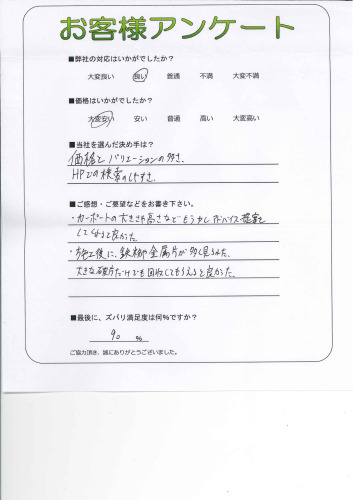 お客様アンケート
■弊社の対応はいかがでしたか？
大変良い 良い 普通 不満 大変不満
■価格はいかがでしたか？
大変安い 安い 普通 高い 大変高い
■当社を選んだ決め手は？
価格とバリエーションの多さ、
HPでの検索のしやすさ、
■ご感想・ご要望などをお書き下さい。
・カーポートの大きさや高さなどもう少しアドバイス提案を
してもらえると良かった
・施工後に、鉄粉や金属片が多く見られた、
大きな破片だけでも回収してもらえると良かった。
■最後に、ズバリ満足度は何%ですか？
90 %
ご協力頂き、誠にありがとうございました。